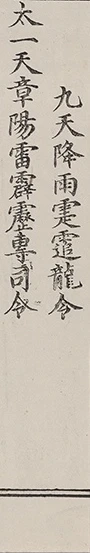 九天降雨龍令
太一天章陽雷霹靂專司令